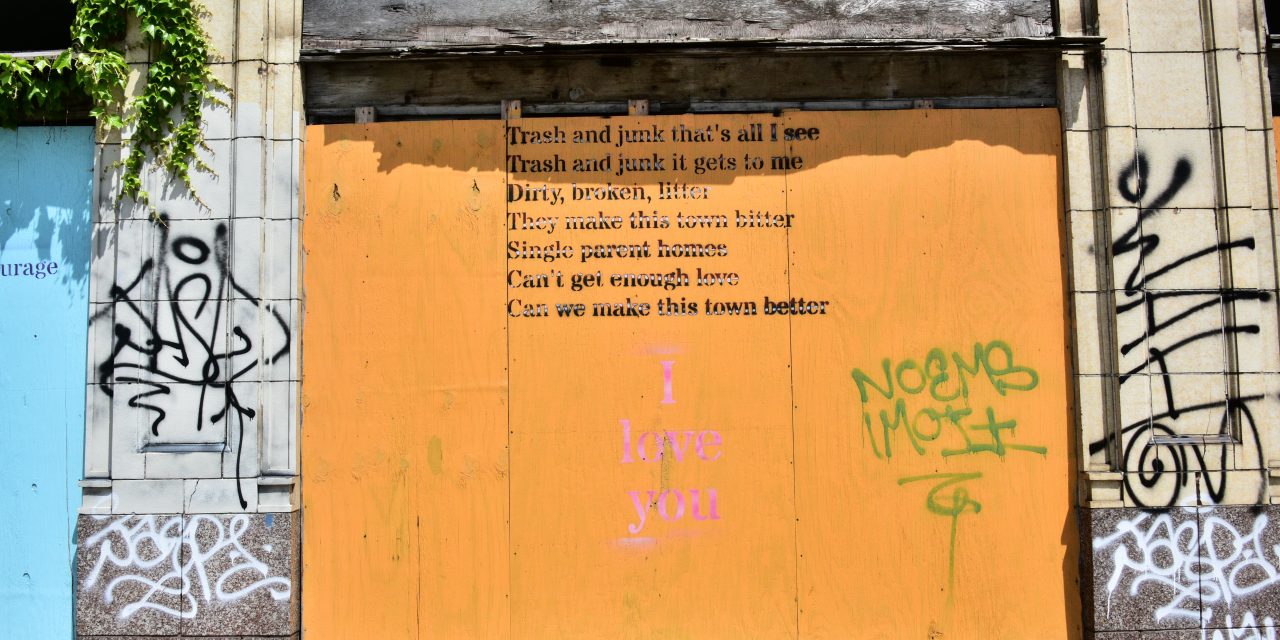 urage
Trash and junk that's all I see
Trash and junk it gets to me
Dirty, broken, litter
They make this town bitter
Single parent homes
Can't get enough love
Can we make this town better
I
love
you
NOEMS